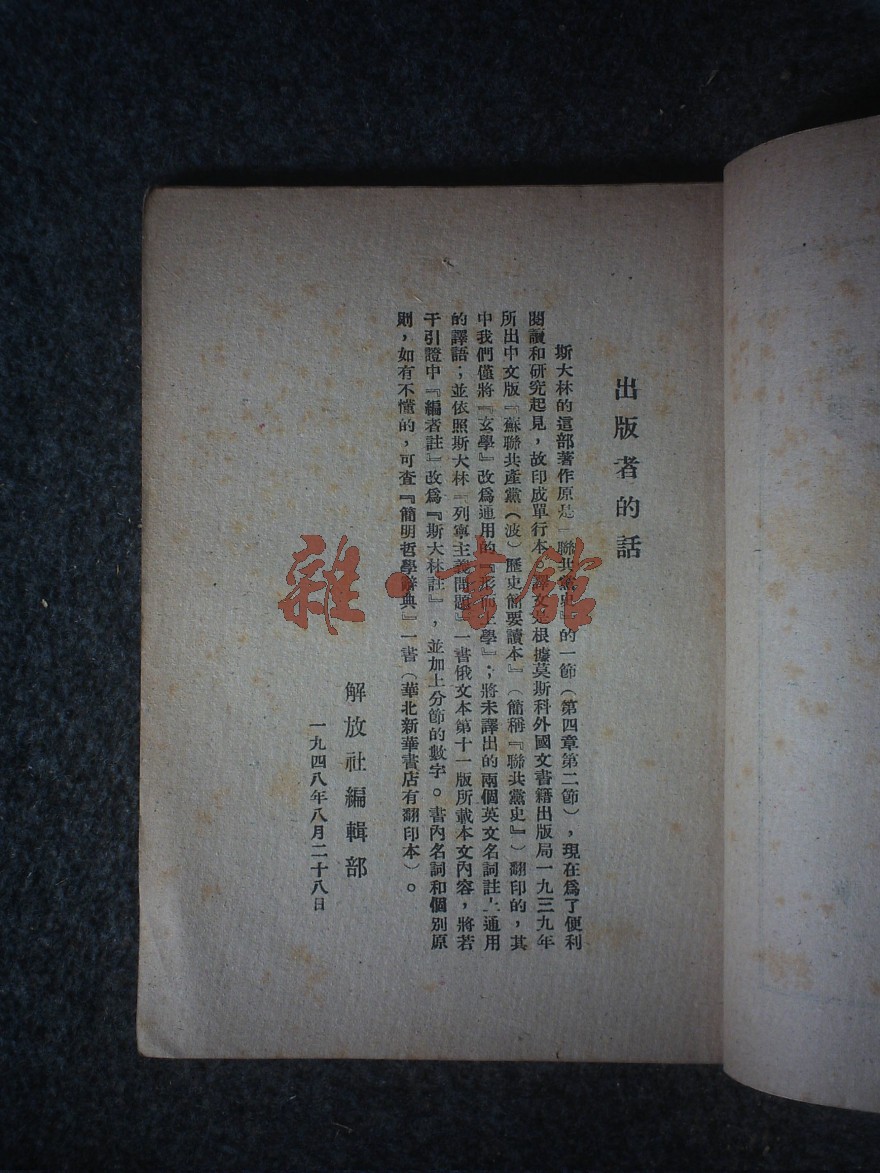 出版者的話
斯大林的這部著作原是『聯共黨史』的一節（第四章第二節），現在爲了便利
閱讀和研究起見，故印成單行本。譯文是根據莫斯科外國文書籍出版局一九三九年
所出中文版『蘇聯共產黨（波）歷史簡要讀本』（簡稱『聯共黨史』）翻印的，其
中我們僅將『玄學』改爲通用的『形而上學』；將未譯出的兩個英文名詞註上通用
的譯語；並依照斯大林『列寧主義問題』一書俄文本第十一版所載本文內容，將若
干引證中『編者註』改爲『斯大林註』，並加上分節的數字。書內名詞和個別原
則，如有不懂的，可查『簡明哲學辭典』一書（華北新華書店有翻印本）。
解放社編輯部
一九四八年八月二十八日
雜·書館